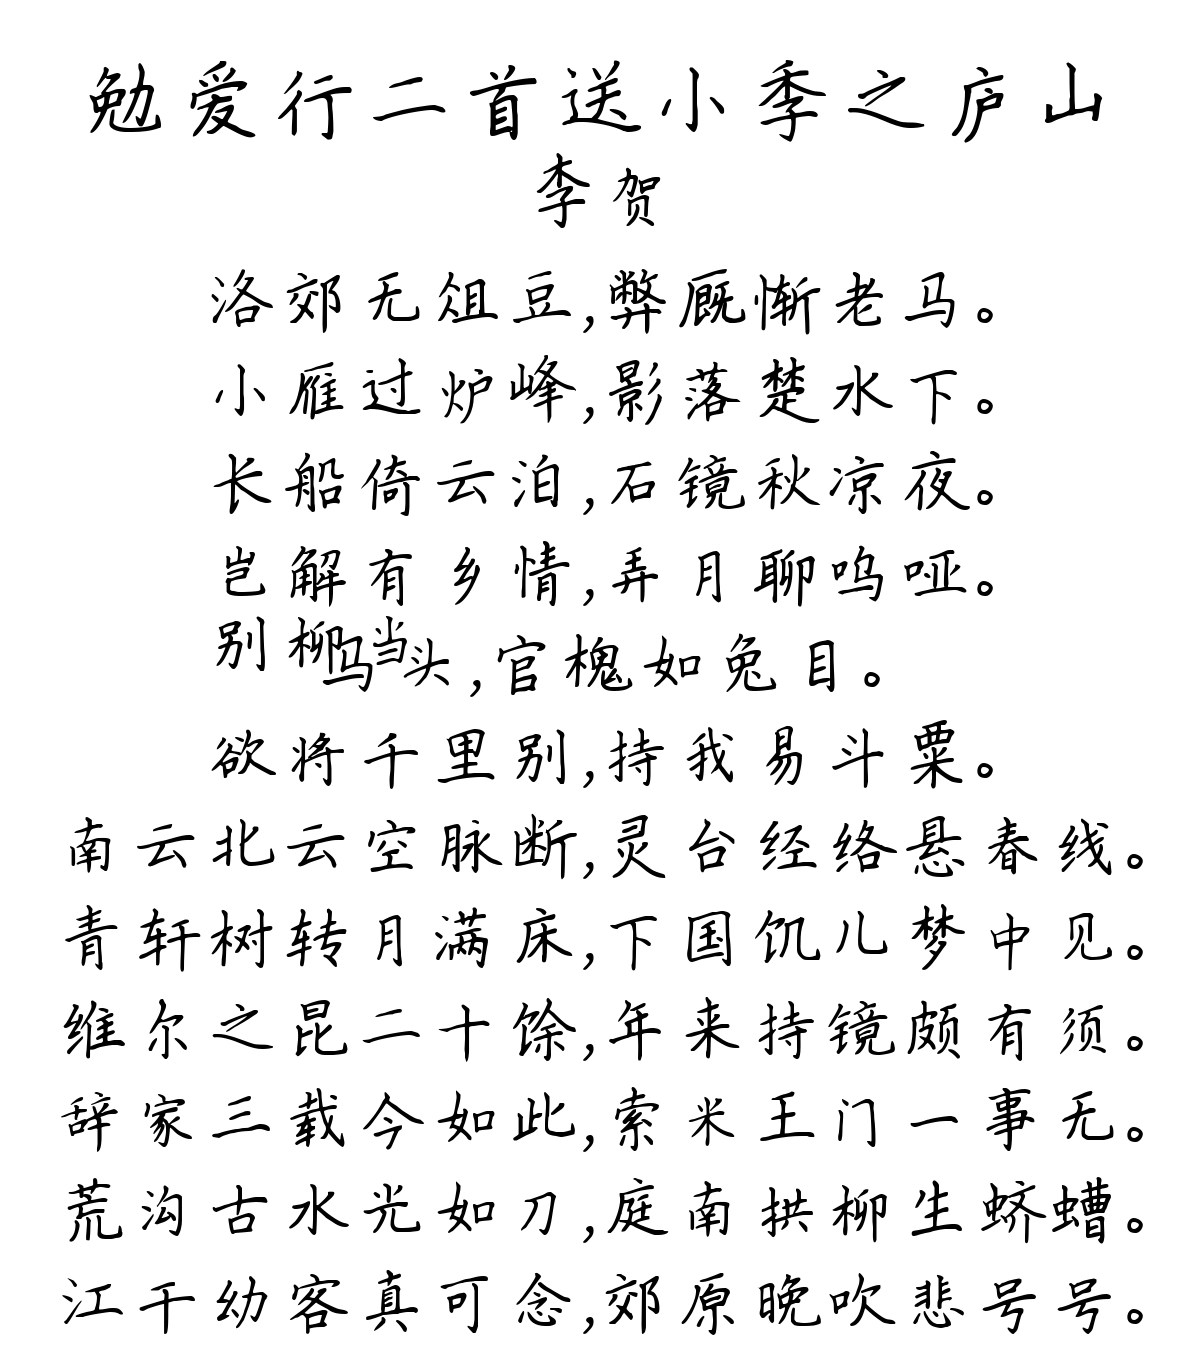 勉爱行二首送小季之庐山
李贺
洛郊无俎豆,弊厩惭老马。
小雁过炉峰,影落楚水下。
长船倚云泊,石镜秋凉夜。
岂解有乡情,弄月聊呜哑。
别柳当马头,官槐如兔目。
欲将千里别,持我易斗粟。
南云北云空脉断,灵台经络悬春线。
青轩树转月满床,下国饥儿梦中见。
维尔之昆二十馀,年来持镜颇有须。
辞家三载今如此,索米王门一事无。
荒沟古水光如刀,庭南拱柳生蛴螬。
江干幼客真可念,郊原晚吹悲号号。